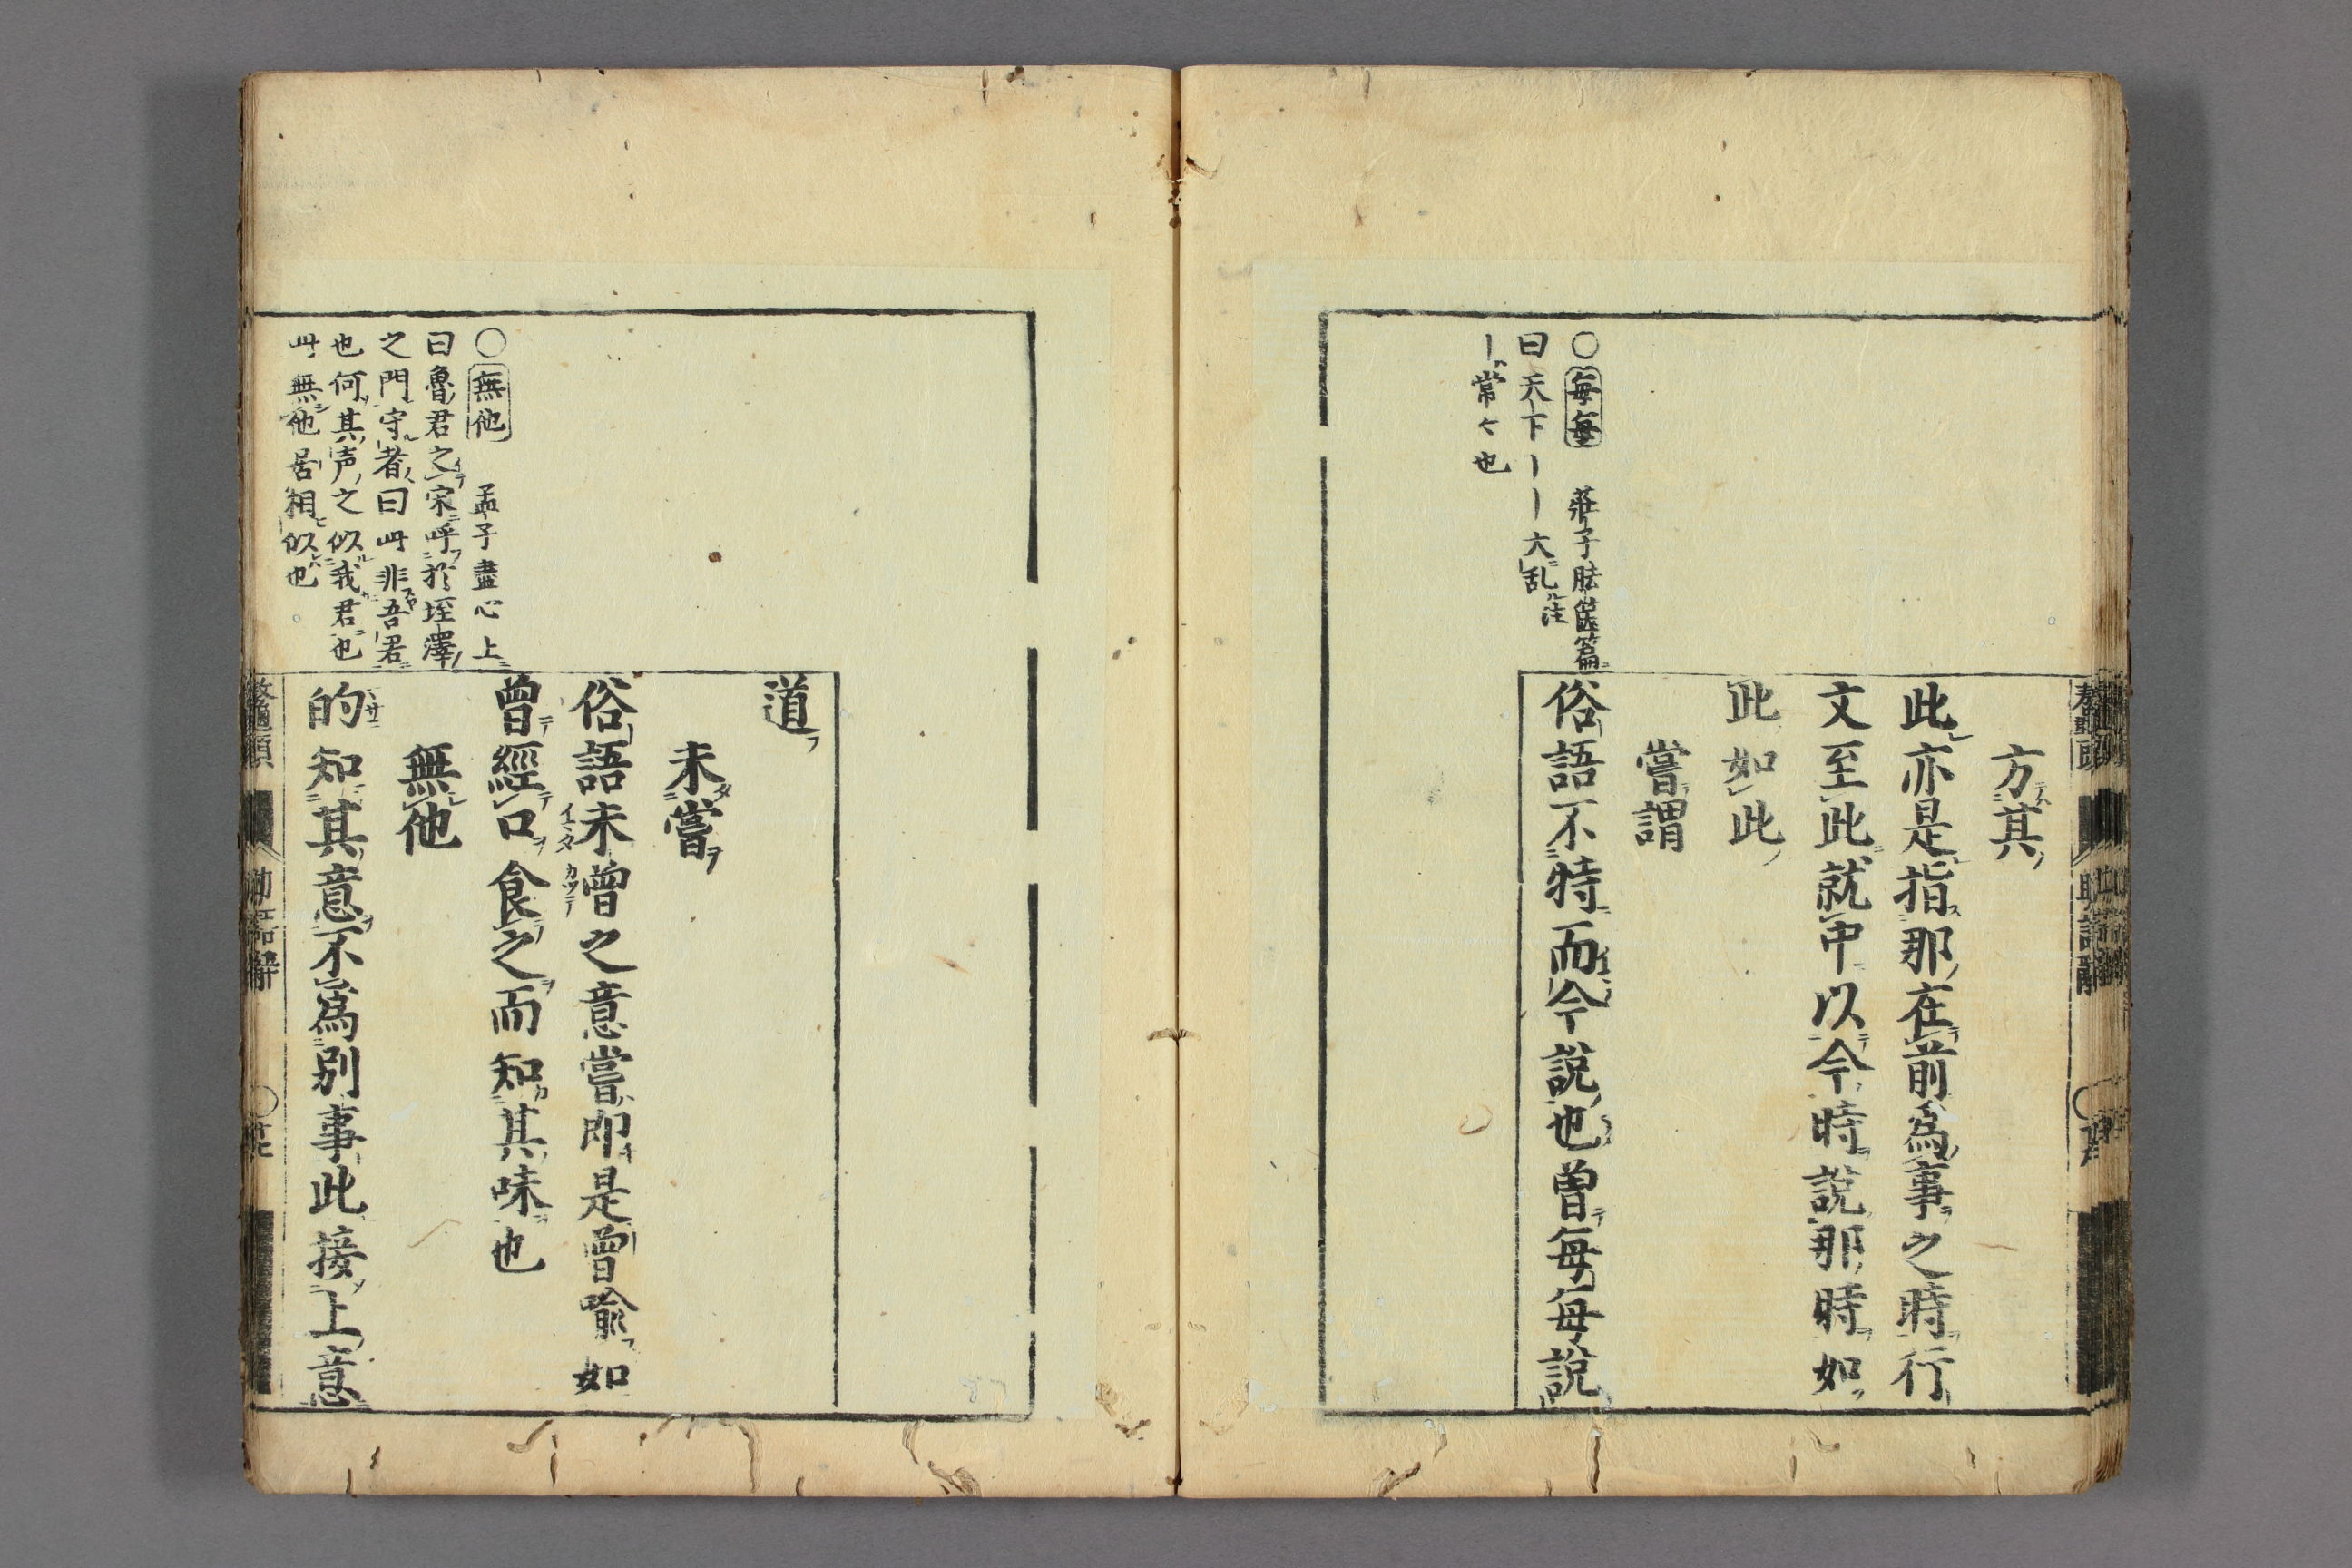 方其
此亦是指那在前爲事之時行
文至此就中以今時說那時如
此如此
嘗謂
俗語不特而今說也曾每每說
○每每 莊子胠篋篇
曰天下〡〡大乱注
〡常々也
道
未嘗
俗語未曾之意嘗即是曾喩如
曾經口食之而知其味也
無他
的知其意不爲別事此接上意
○無他 孟子盡心上
曰魯君之宋呼於垤澤
之門守者曰此非吾君
也何其声之似我君也
此無他居相似也